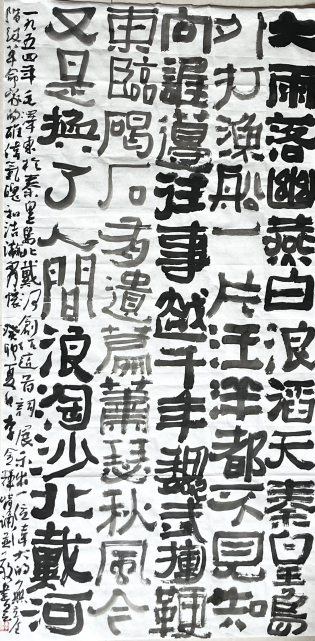 大雨落幽燕白浪滔天秦皇島
外打漁船一片汪洋都不見知
向誰邊往事越千年魏武揮鞭
東臨碣石有遺篇蕭瑟秋風今
又是換了人間浪淘沙北戴河
一九五四年毛澤東於秦皇島北戴河創作這首詞展示出一位偉大的無產
階級革命家的雄偉氣魄和浩瀚胸懷癸卯夏日李